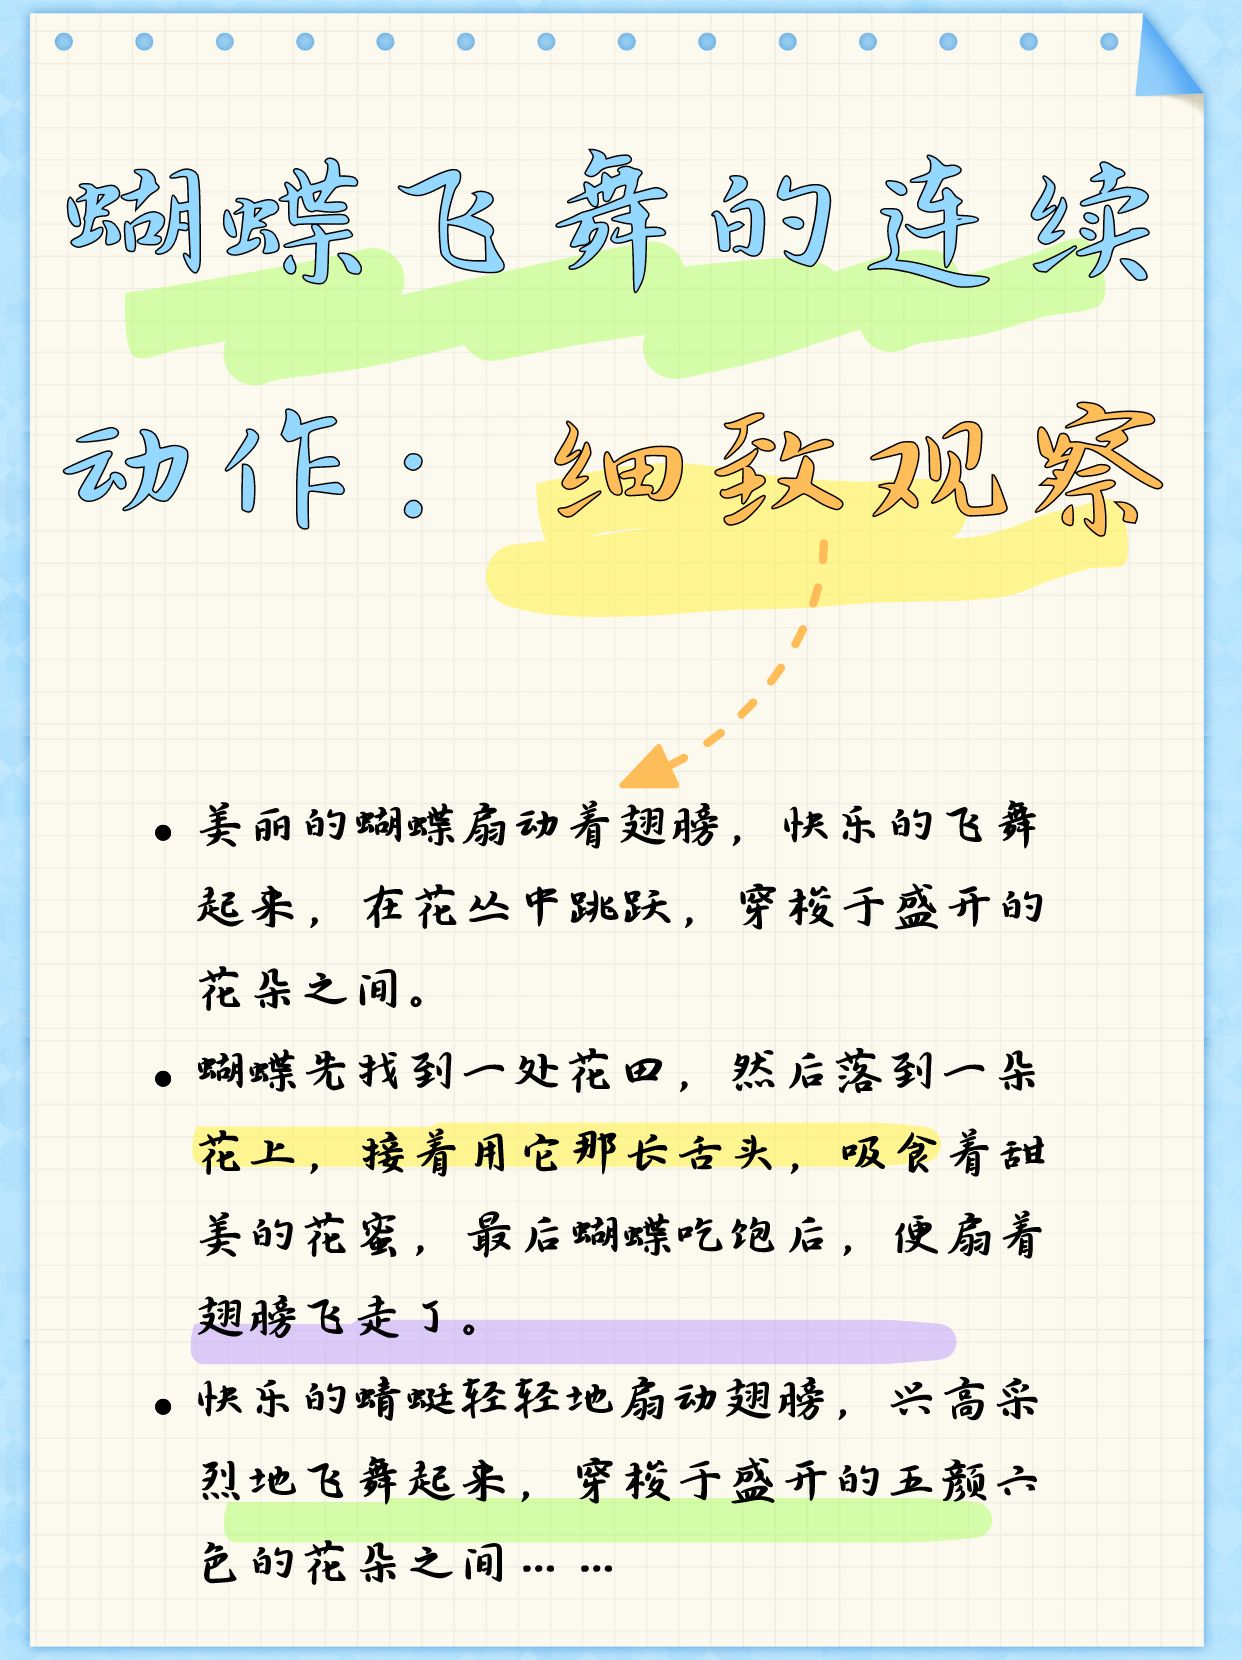 蝴蝶飞舞的连续
动作：细致观察
美丽的蝴蝶扇动着翅膀，快乐的飞舞
起来，在花丛中跳跃，穿梭于盛开的
花朵之间。
蝴蝶先找到一处花田，然后落到一朵
花上，接着用它那长舌头，吸食着甜
美的花蜜，最后蝴蝶吃饱后，便扇着
翅膀飞走了。
快乐的蜻蜓轻轻地扇动翅膀，兴高采
烈地飞舞起来，穿梭于盛开的五颜六
色的花朵之间……